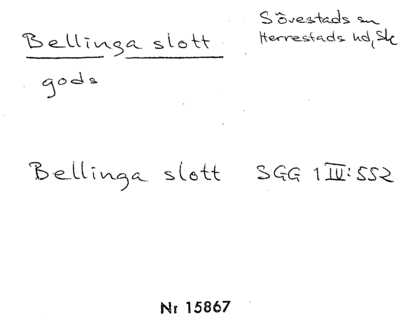 Bellinga slott
Sövestads sn
Herrestads hd, Sk
gods
Bellinga slott SGG 1 IV: 552
Nr 15867